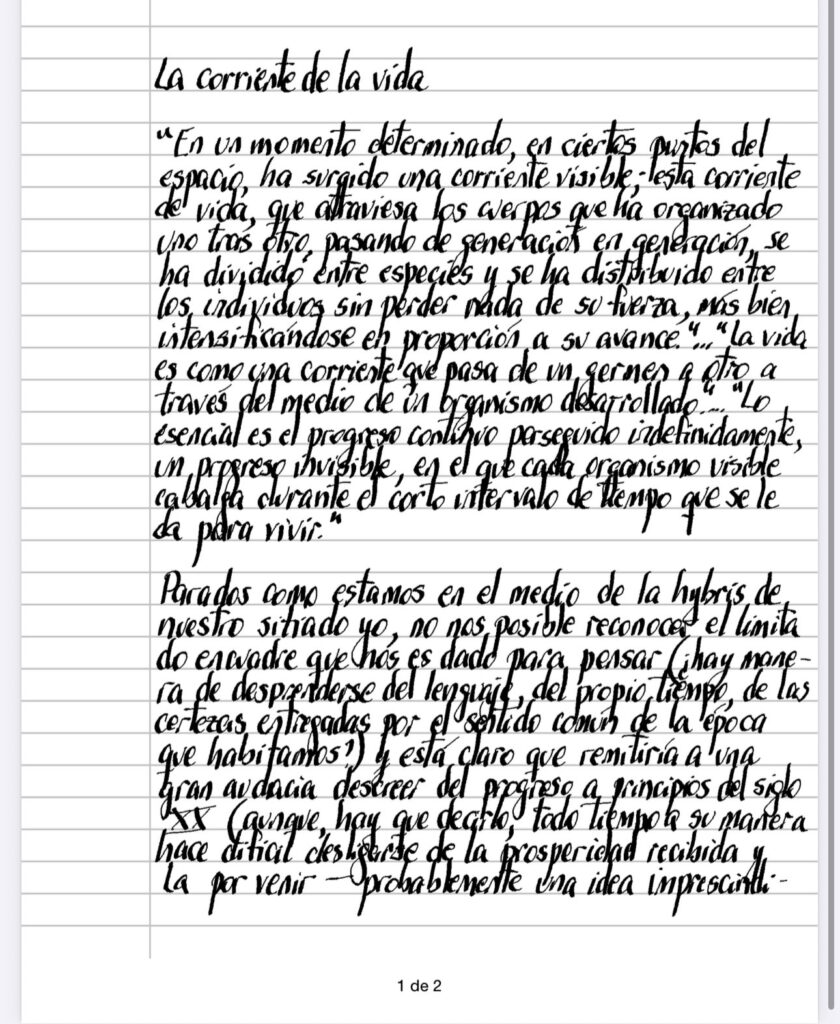 La corriente de la vida
"En un momento determinado, en ciertos puntos del
espacio, ha surgido una corriente visible; esta corriente
de vida, que atraviesa los cuerpos que ha organizado
uno tras otro, pasando de generación en generación, se
ha dividido entre especies y se ha distribuido entre
los individuos sin perder nada de su fuerza, más bien
intensificándose en proporción a su avance."..."La vida
es como una corriente que pasa de un germen a otro a
través del medio de un organismo desarrollado."..."Lo
esencial es el progreso continuo perseguido indefinidamente,
un progreso invisible, en el que cada organismo visible
cabalga durante el corto intervalo de tiempo que se le
da para vivir."
Parados como estamos en el medio de la hybris de
nuestro sitiado yo, no nos posible reconocer el limita
do encuadre que nos es dado para pensar (¿hay mane-
ra de desprenderse del lenguaje, del propio tiempo, de las
certezas entregadas por el sentido común de la época
que habitamos?) y está claro que remitiría a una
gran audacia descreer del progreso a principios del siglo
XX (aunque, hay que decirlo, todo tiempo a su manera
hace difícil desligarse de la prosperidad recibida y
la por venir — probablemente una idea imprescindi-
1 de 2